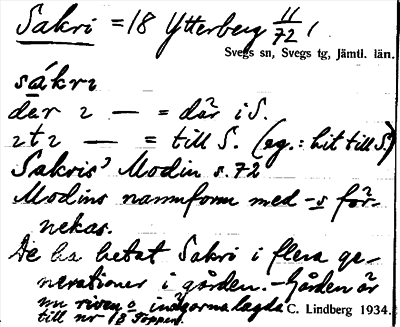 Sakri = 18 Ytterberg 11/72 1
Svegs sn, Svegs tg, Jämtl. län.
sákrı
där ı — = där i S.
ıtı — = till S. (eg.: hit till S.)
Sakris' Modin s. 72
Modins namnform med -s för-
nekas.
De ha hetat Sakri i flera ge-
nerationer i gården. - Gården är
nu riven o inägorna lagda
till nr 8 Toppen.
C. Lindberg 1934.